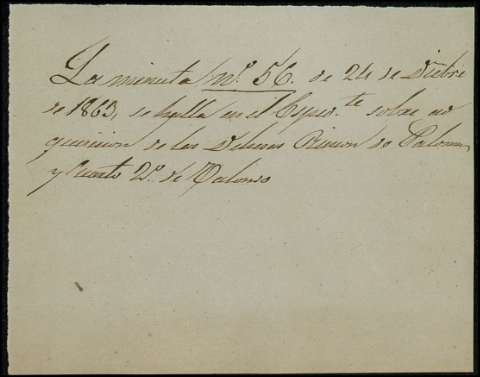 La minuta nº 56. de 24 de Diebre
de 1863, se halla en el Espedte sobre ad
quisicion de las Dehesas Rincon de Palomas
y Cuarto 2º de